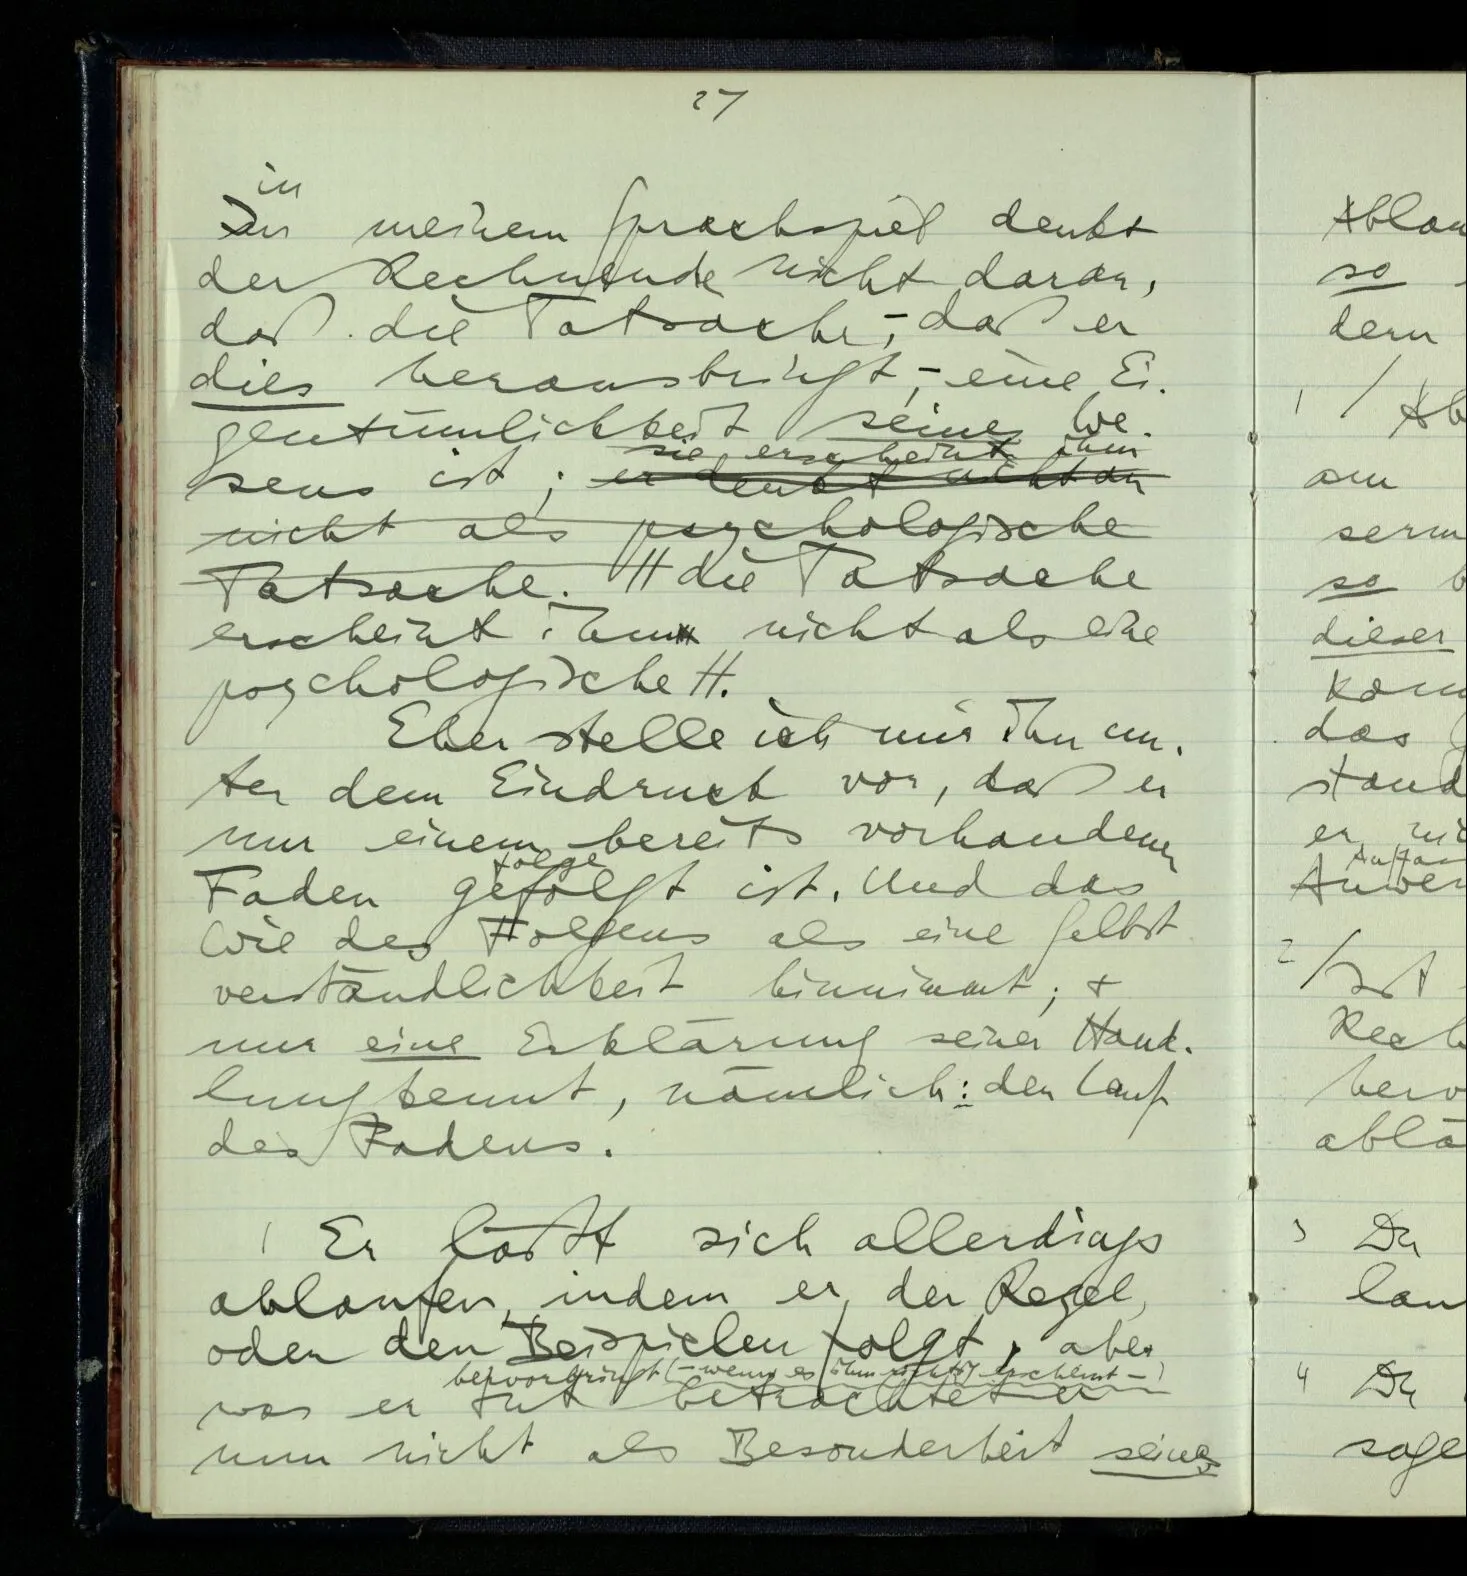 27
in
In meinem Sprachspiel denkt
der Rechnende nicht daran,
daß die Tatsache, – daß er
dies herausbringt, – eine Ei-
gentümlichkeit seines We-
sie erscheint ihm
sens ist; er denkt nicht an
nicht als psychologische
Tatsache. // die Tatsache
erscheint ihm nicht als eine
psychologische //.
Eher stelle ich mir ihn un-
ter dem Eindruck vor, daß er
nur einem bereits vorhandenen
folge
Faden gefolgt ist. Und das
Wie des Folgens als eine Selbst
verständlichkeit hinnimmt; &
nur eine Erklärung seiner Hand-
lung kennt, nämlich: den Lauf
des Fadens.
1 Er läßt sich allerdings
ablaufen, indem er der Regel,
oder den Beispielen folgt, aber
hervorbringt (– wenn es ihm richtig erscheint –)
was er tut betrachtet er
nun nicht als Besonderheit seines
Ablau
so
dern
1 / Ab
am
serm
so b
dieser
kom
das
stand
er nic
Auffas
Anwen
2 / Ist
Rech
hervo
ablä
3 Du
lau
4 Du
sage